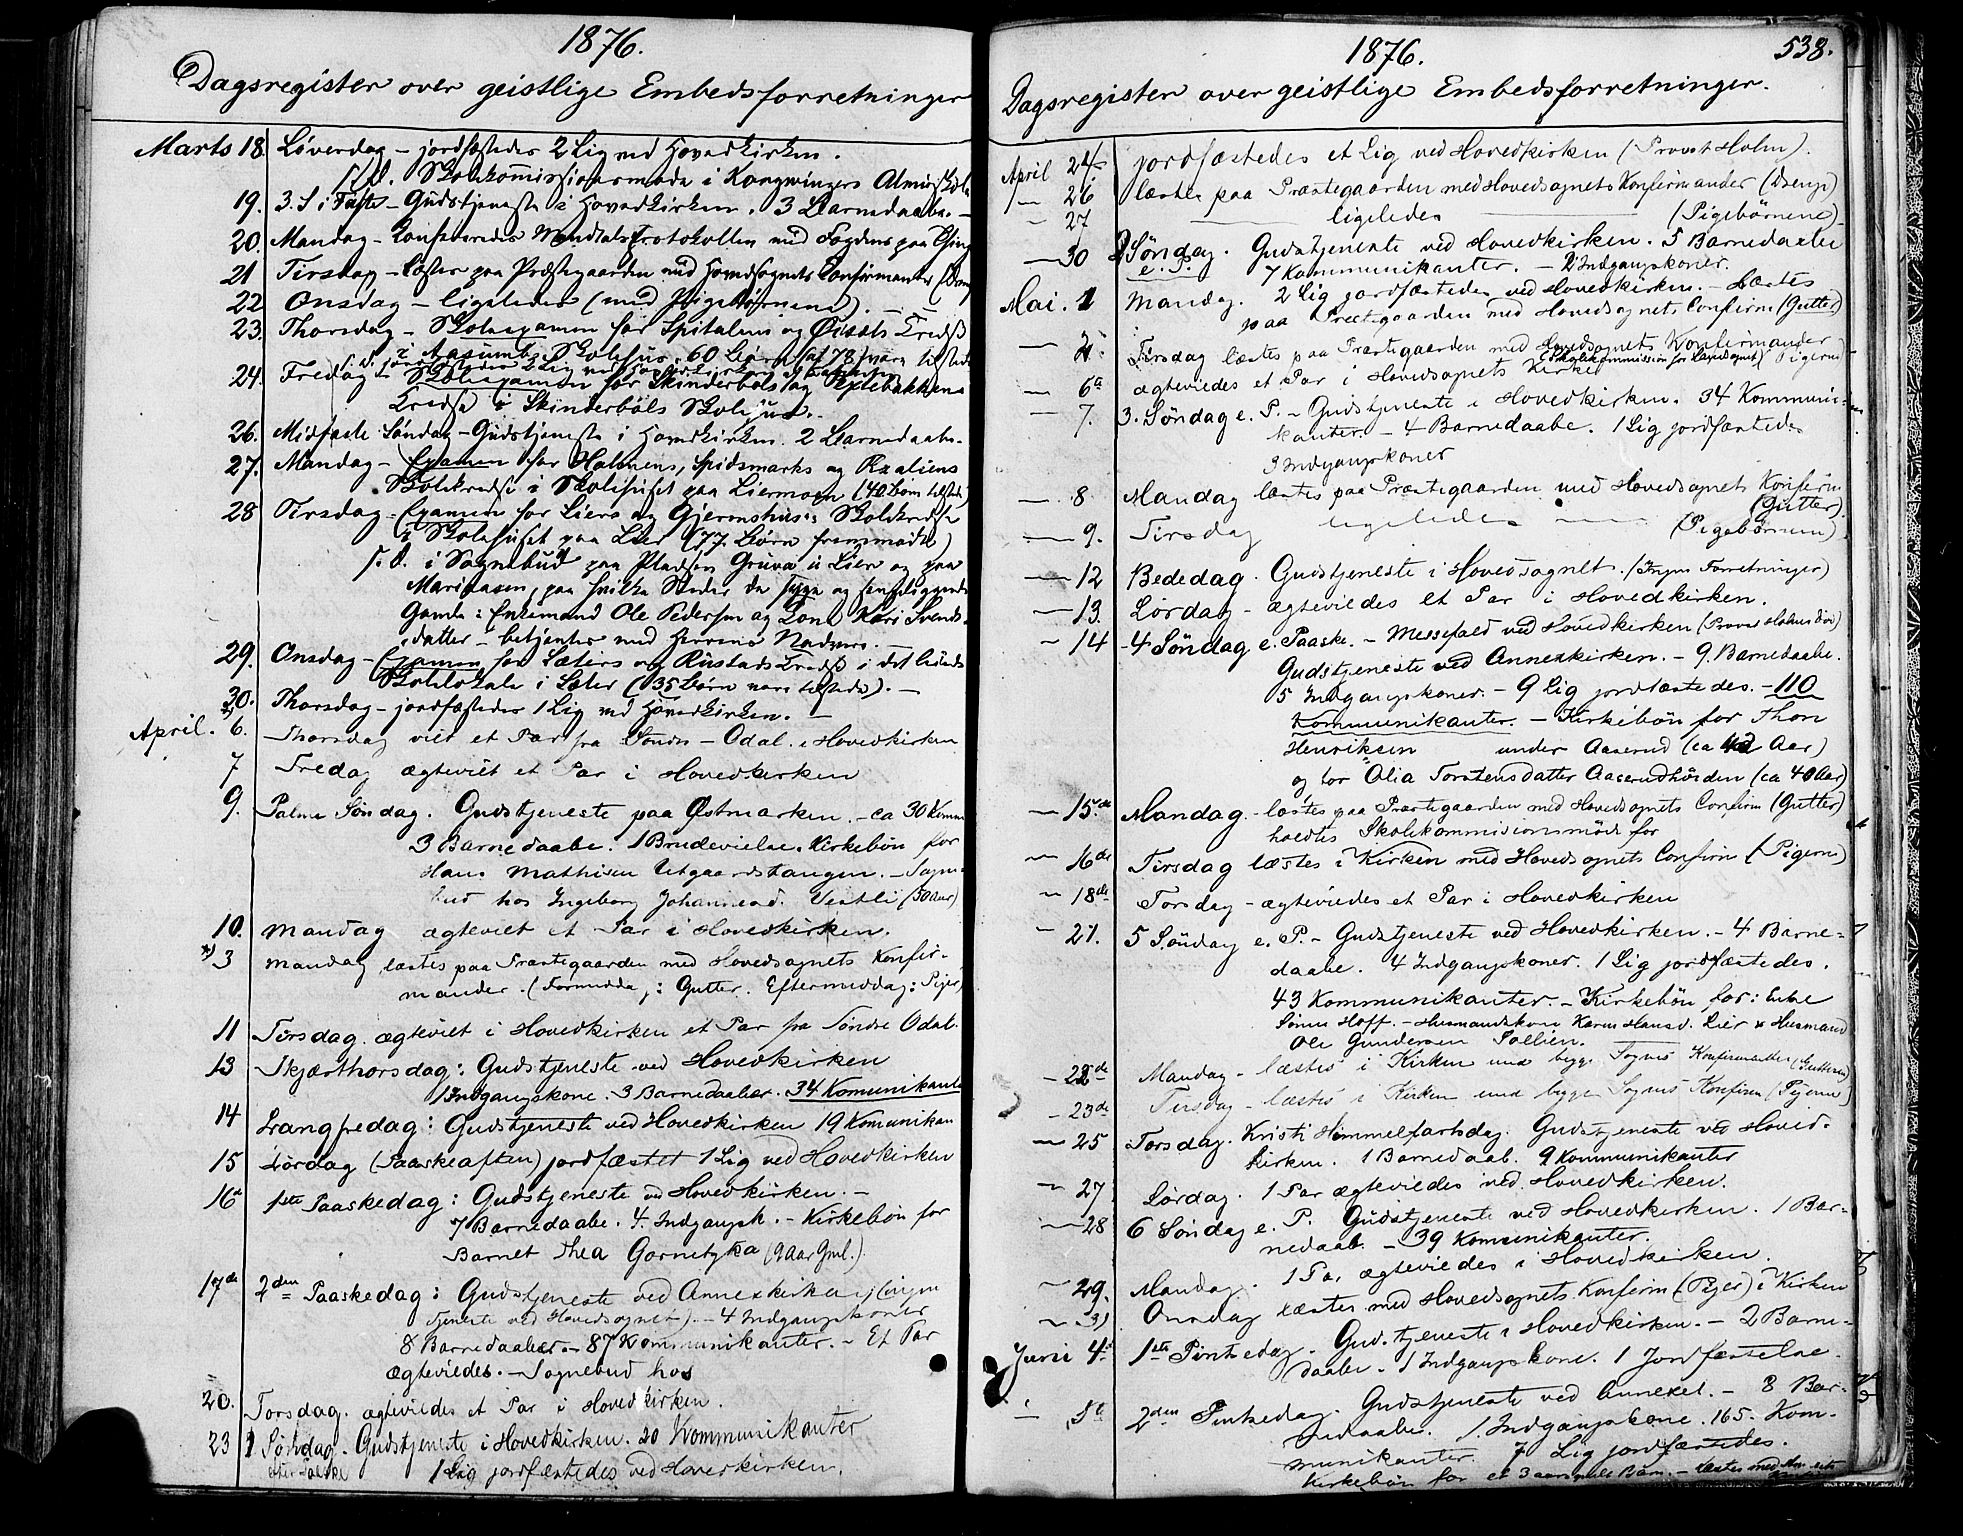 1876.
Dagsregister over geistlige Embedsforretninger
Marts 18 Løverdag – jordfæstedes 2 Lig ved Hovedkirken.
s. D. Skolekommissionsmøde i Kongsvingers Almueskole
19. 3. S. i Faste – Gudstjeneste i Hovedkirken. 3 Barnedaabe. –
20. Mandag – Konfereredes Mandtalsprotokollen med Fogdens paa
21 Tirsdag – læstes paa Præstegaarden med Hovedsognets Confirmanter (Dreng
22 Onsdag – ligeledes (med Pigebørnene). –
23. Thorsdag – Skoleexamen for Spitalens og Kreds
i Skolehus. 60 Børn (af 78) vare tilstede
s. D. jordfæstedes 2 Lig ved Hovedkirken
24. Fredag – Skoleexamen for Skinderbøls og
Kredse i Skinderbøls Skolehus. –
26. Midfaste Søndag – Gudstjeneste i Hovedkirken. 2 Barnedaabe.
27. Mandag – Examen for Holmens, Spidsmarks og
Skolekredse i Skolehuset paa Liermoen (40 Børn tilstede)
28 Tirsdag – Examen for Liers og Gjermshus's Skolekredse
i Skolehuset paa Lier (77 Børn fremmødte)
s. D. i Sognebud paa Pladsen Gruva u. Lier og paa
, paa hvilke Steder de syge og sengeliggende
Gamle: Enkemand Ole Pedersen og Kone Kari Svends-
datter – betjentes med Herrens Nadvere. –
29. Onsdag – Examen for Sæters og Rustads Kreds i det leiede
Skolelokale i Sæter (35 Børn vare tilstede). –
30. Thorsdag – jordfæstedes 1 Lig ved Hovedkirken. –
April. 6. Thorsdag viet et Par fra Søndre-Odal i Hovedkirken
7 Fredag ægteviet et Par i Hovedkirken
9. Palme Søndag. Gudstjeneste paa Østmarken. – ca 30 Komm
3 Barnedaabe. 1 Brudevielse. Kirkebøn for
Hans Mathisen Utgaardstangen. – Sogne-
bud hos Ingeborg Johannesd. Vestli (50 Aar)
10. Mandag ægteviet et Par i Hovedkirken.
*) 3 Mandag læstes paa Præstegaarden med Hovedsognets Konfir-
mander. (Formiddag: Gutter. Eftermiddag: Piger)
11 Tirsdag. ægteviet i Hovedkirken et Par fra Søndre Odal.
13 Skjærthorsdag: Gudstjeneste ved Hovedkirken
1 Indgangskone. 3 Barnedaaber. 34 Komunikante
14 Langfredag: Gudstjeneste ved Hovedkirken 19 Komunikan
15 Lørdag (Paaskeaften) jordfæstet 1 Lig ved Hovedkirken
16d 1ste Paaskedag: Gudstjeneste ved Hovedkirken. –
7 Barnedaabe. 4. Indgangsk. – Kirkebøn for
Barnet Thea (9 Aar Gml.)
17de 2den Paaskedag: Gudstjeneste ved Annexkirka, (ingen
Tjeneste ved Hovedsognet). – 4 Indgangskoner
8 Barnedaaber. – 87 Kommunikanter. – Et Par
ægteviedes. – Sognebud hos
20. Torsdag. ægteviedes et Par i Hovedkirken.
23 1 Søndag. Gudstjeneste i Hovedkirken. 20 Kommunikanter
efter Paaske 1 Lig jordfæstedes ved Hovedkirken.
1876. 538.
Dagsregister over geistlige Embedsforretninger.
April 24 jordfæstedes et Lig ved Hovedkirken (Provst Holm).
– 26 læstes paa Præstegaarden med Hovedsognets Konfirmander (Drenge)
– 27 ligeledes (Pigebørnene)
– 30 2 Søndag. Gudstjeneste ved Hovedkirken. 5 Barnedaabe
e. P. 7 Kommunikanter. – 2 Indgangskoner.
Mai. 1 Mandag. 2 Lig jordfæstedes ved Hovedkirken. – Læstes
paa Præstegaarden med Hovedsognets Confirm (Gutter)
– 2. Tirsdag læstes paa Præstegaarden med Hovedsognets Konfirmander
Pigerne
– 6te ægteviedes et Par i Hovedsognets Kirke
– 7. 3. Søndag e. P. – Gudstjeneste i Hovedkirken. 34 Kommuni-
kanter. – 4 Barnedaabe. 1 Lig jordfæstedes
3 Indgangskoner
– 8 Mandag læstes paa Præstegaarden med Hovedsognets Konfirm
(Gutter)
– 9. Tirsdag ligeledes (Pigebørnene)
– 12 Bededag. Gudstjeneste i Hovedsognet. (Ingen Forretninger)
– 13. Lørdag – ægteviedes et Par i Hovedkirken.
– 14 4 Søndag e. Paaske. – Messefald ved Hovedkirken (Provst Holms Død)
Gudstjeneste ved Annexkirken. – 9. Barnedaabe.
5 Indgangskoner. – 9 Lig jordfæstedes. – 110
Kommunikanter. – Kirkebøn for Thore
Henriksen under Aaserud (ca 42 Aar)
og for Olia Torstensdatter (ca 40 Aar)
– 15de Mandag – læstes paa Præstegaarden med Hovedsognets Confirm (Gutter)
holdtes Skolekommisionsmøde for
– 16de Tirsdag læstes i Kirken med Hovedsognets Confirm (Pigerne)
– 18de Torsdag – ægteviedes et Par i Hovedkirken
– 21. 5 Søndag e. P. – Gudstjeneste ved Hovedkirken. – 4 Barne-
daabe. 4 Indgangskoner. 1 Lig jordfæstedes.
43 Kommunikanter. – Kirkebøn for: Enke
Hoff. – Husmandskone Karen Hansd. Lier & Husmand
Ole Gundersen
– 22de Mandag – læstes i Kirken med begge Sognes Konfirmander (Gutterne)
– 23de Tirsdag – læstes i Kirken med begge Sognes Konfirm (Pigerne)
– 25 Torsdag. Kristi Himmelfartsdag. Gudstjeneste ved Hoved-
kirken. 1 Barnedaab. 9 Kommunikanter
– 27 Lørdag. 1 Par ægteviedes ved Hovedkirken.
– 28 6 Søndag e. P. Gudstjeneste ved Hovedkirken. 1 Bar-
nedaab. – 39 Komunikanter.
– 29. Mandag. 1 Par ægteviedes i Hovedkirken.
– 31 Onsdag læstes med Hovedsognets Konfirm (Piger) i Kirken
Juni 4de 1ste Pintsedag. Gudstjeneste i Hovedkirken. – 2 Barne-
daabe. 1 Indgangskone. 1 Jordfæstelse.
– 5te 2den Pintsedag. Gudstjeneste ved Annexet. – 8 Bar-
nedaabe. 1. Indgangskone. 165. Kom-
munikanter. 7 Lig jordfæstedes.
Kirkebøn for et 3 aars Barn. – læstes med